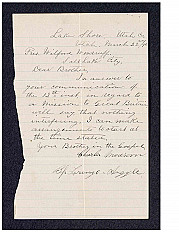 Lake Shore, Utah Co
Utah March 22/9
Pres. Wilford Woodruff,
Salt Lake City,
Dear Brother,
In answer to
your communication of
the 18th inst in regard to
a mission to Great Britain
will say that nothing
interfering, I can make
arrangements to start at
the time stated.
Your Brother in the Gospel,
Charles
Bp